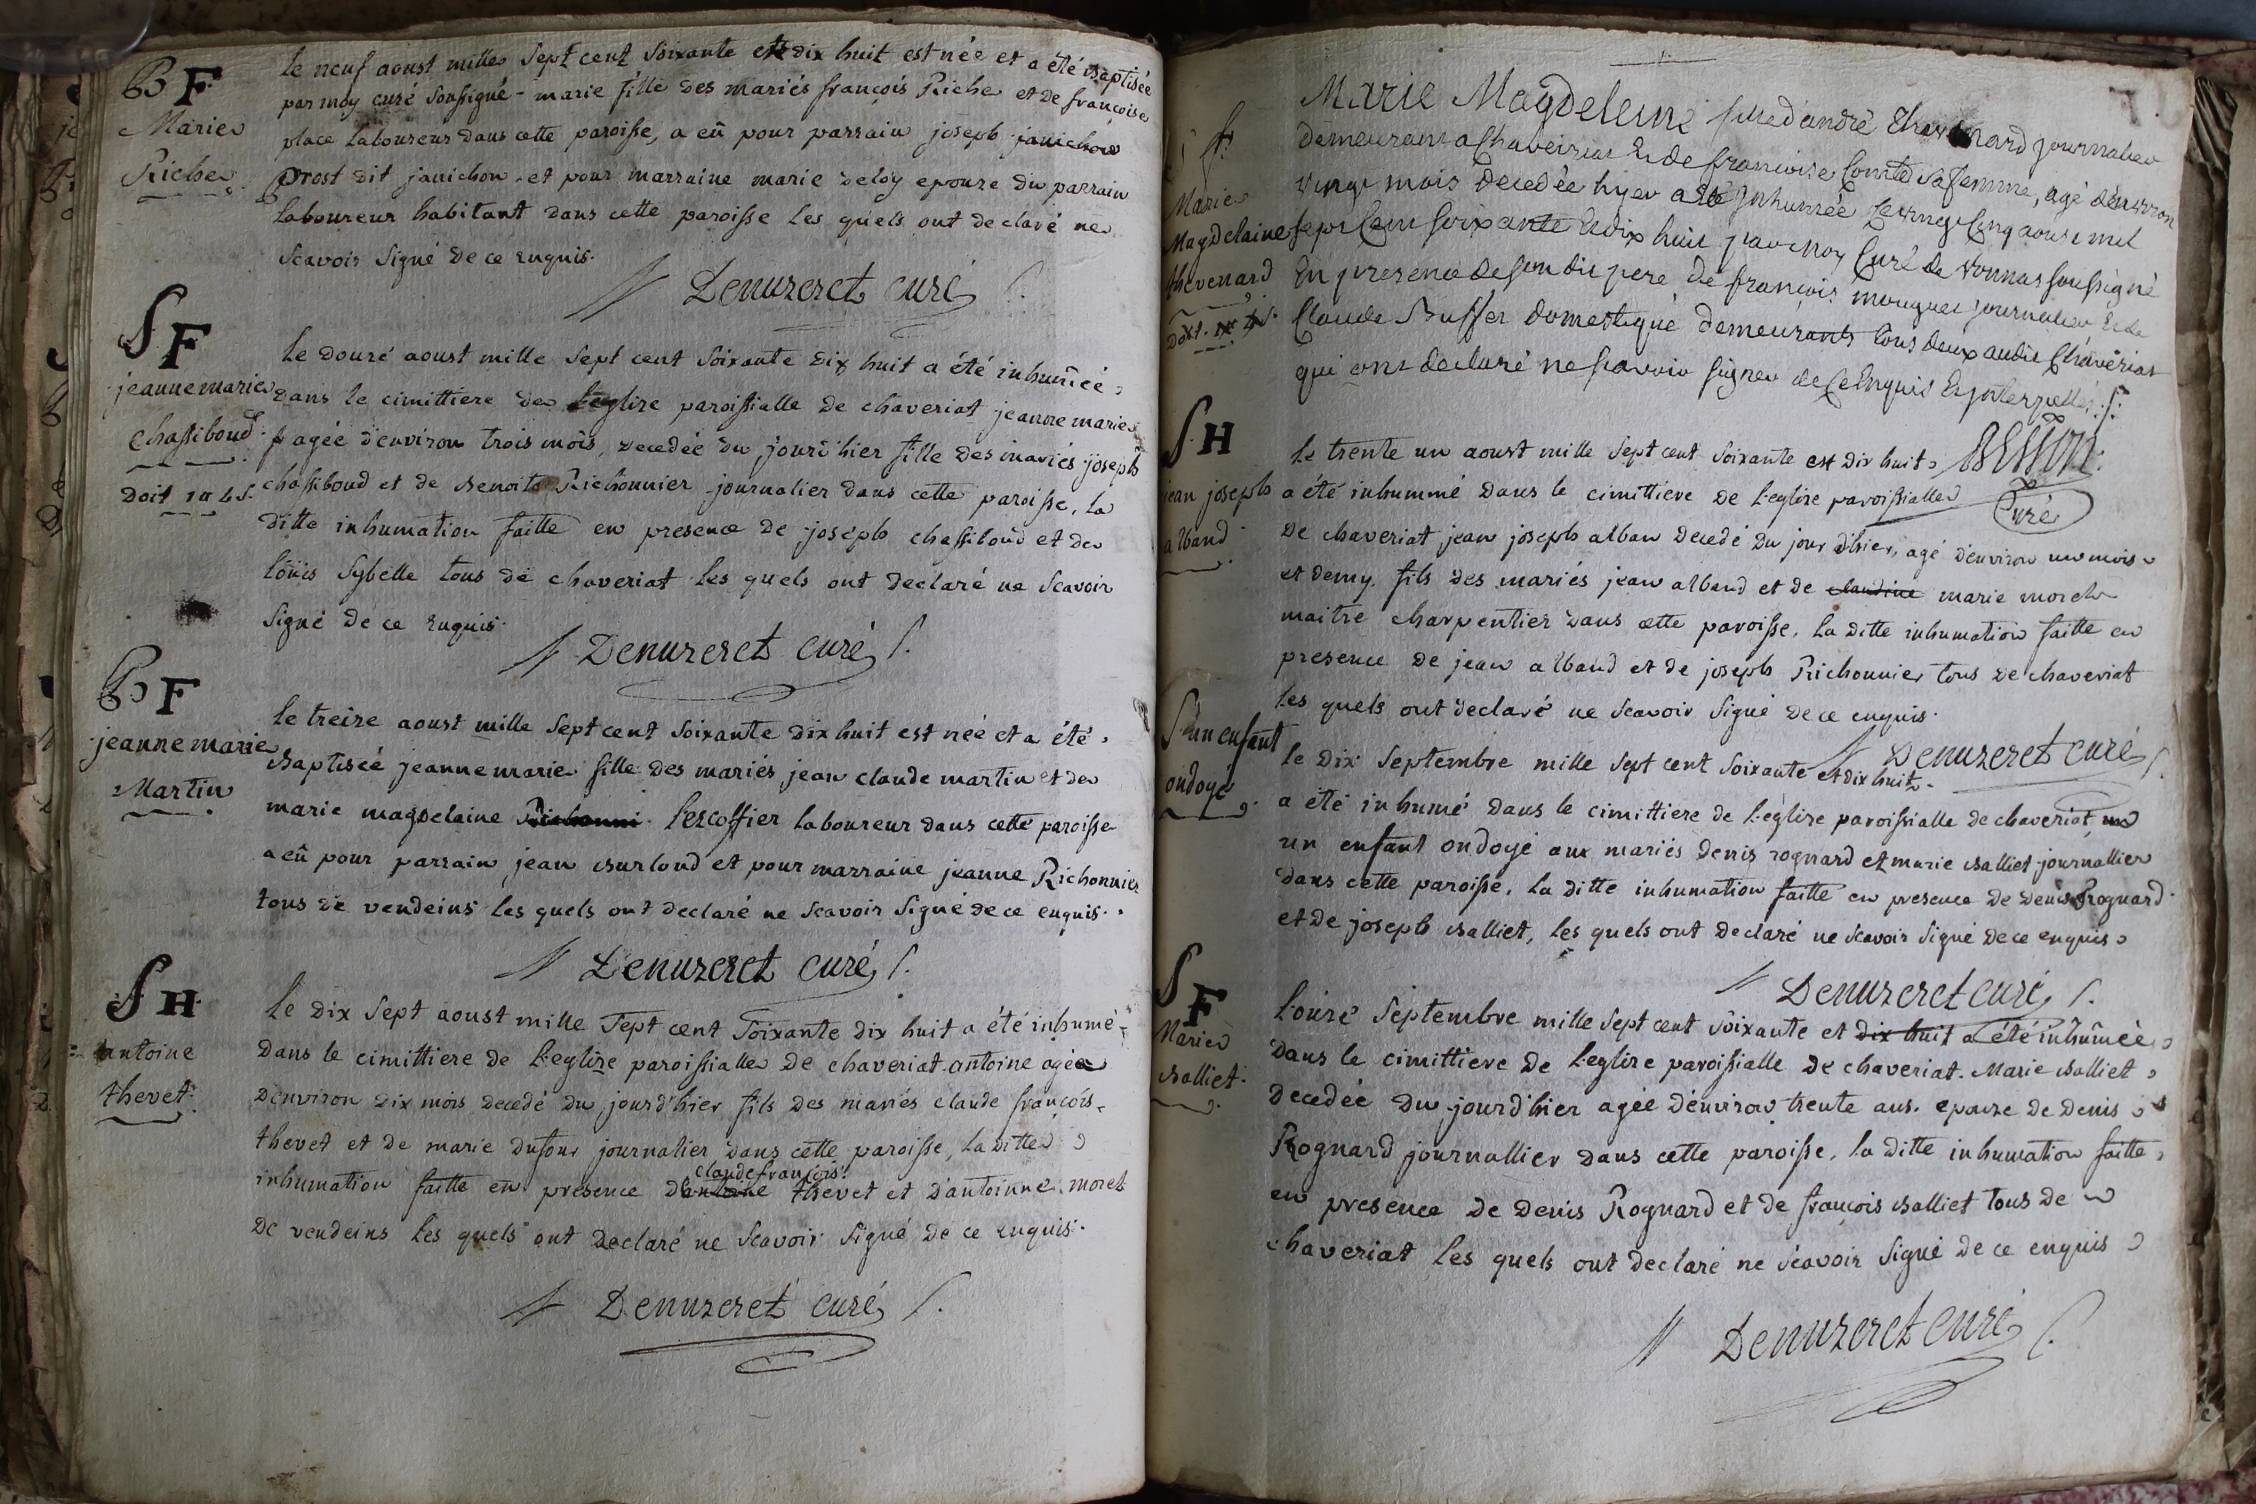 B F
Marie
Riche
le neuf aoust mille sept cent soixante et dix huit est née et a été baptisée
par moy curé soussigné - marie fille des mariés françois Riche et de françoise
place laboureurs dans cette paroisse, a eû pour parrain joseph janichon
Prost dit janichon et pour marraine marie deloy epouze du parrain
laboureur habitant dans cette paroisse les quels ont declaré ne
scavoir signé de ce enquis.
Denuzeret curé
S F
jeanne marie
chassiboud
doit 1# 4 s.
le douzé aoust mille sept cent soixante dix huit a été inhumée
dans le cimittiere de l'eglize paroissialle de chaveriat jeanne marie
agée d'environ trois mois, decedée du jourd'hier fille des mariés joseph
chassiboud et de benoite Richonnier journalier dans cette paroisse, la
ditte inhumation faitte en presence de joseph chassiboud et de
loüis sybelle tous de chaveriat les quels ont declaré ne scavoir
signé de ce enquis.
Denuzeret curé
B F
jeanne marie
Martin
le treize aoust mille sept cent soixante dix huit est née et a été
baptiséé jeanne marie fille des mariés jean claude martin et de
marie magdelaine Richonni lescoffier laboureur dans cette paroisse
a eû pour parrain jean burloud et pour marraine jeanne Richonnier
tous de vendeins les quels ont declaré ne scavoir signé de ce enquis.
Denuzeret curé
S H
antoine
thevet
le dix sept aoust mille sept cent soixante dix huit a été inhumé
dans le cimittiere de l'eglize paroissialle de chaveriat antoine agée
d'environ dix mois decedé du jourd'hier fils des mariés claude françois
thevet et de marie dufour journalier dans cette paroisse, la ditte
claude françois
inhumation faitte en presence d'antoine thevet et d'antoinne moret
de vendeins les quels ont declaré ne scavoir signé de ce enquis.
Denuzeret curé
Marie
Magdelaine
thevenard
doit
Marie Magdeleine fille d'andré thevenard journalier
demeurant a Chaveiriat et de francoise Comte sa femme, agé d'environ
vingt mois decedée hyer a été Inhumée le vingt cinq aoust mil
sept cent soixante et dix huit par moy Curé de vonnas soussigné
En presence de son dit pere de françois mouquet journalier et de
Claude Buffet domestique demeurants tous deux audit Chaveriat
qui ont declaré ne scavoir signer de ce Enquis et Interpellés
Curé
S H
jean joseph
alband
le trente un aoust mille sept cent soixante est dix huit
a été inhummé dans le cimittiere de l'eglize paroissialle
de chaveriat jean joseph alban decedé du jour d'hier, agé d'environ un mois
et demy. fils des mariés jean alband et de claudine marie morel
maitre charpentier dans cette paroisse, la ditte inhumation faitte en
presence de jean alband et de joseph Richonnier tous de chaveriat
les quels ont declaré ne scavoir signé de ce enquis.
Denuzeret curé
S d'un enfant
ondoyé
le dix septembre mille sept cent soixante et dix huit
a été inhumé dans le cimittiere de l'eglize paroissialle de chaveriat un
un enfant ondoyé aux mariés denis rognard et marie balliet journallier
dans cette paroisse, la ditte inhumation faitte en presence de denis Rognard
et de joseph balliet, les quels ont declaré ne scavoir signé de ce enquis
Denuzeret curé
S F
Marie
balliet
l'onze septembre mille sept cent soixante et dix huit a été inhumée
dans le cimittiere de l'eglize paroissialle de chaveriat. Marie balliet
decedée du jourd'hier agée d'environ trente ans. epouze de Denis
Rognard journallier dans cette paroisse, la ditte inhumation faitte
en presence de Denis Rognard et de françois balliet tous de
chaveriat les quels ont declaré ne scavoir signé de ce enquis
Denuzeret curé